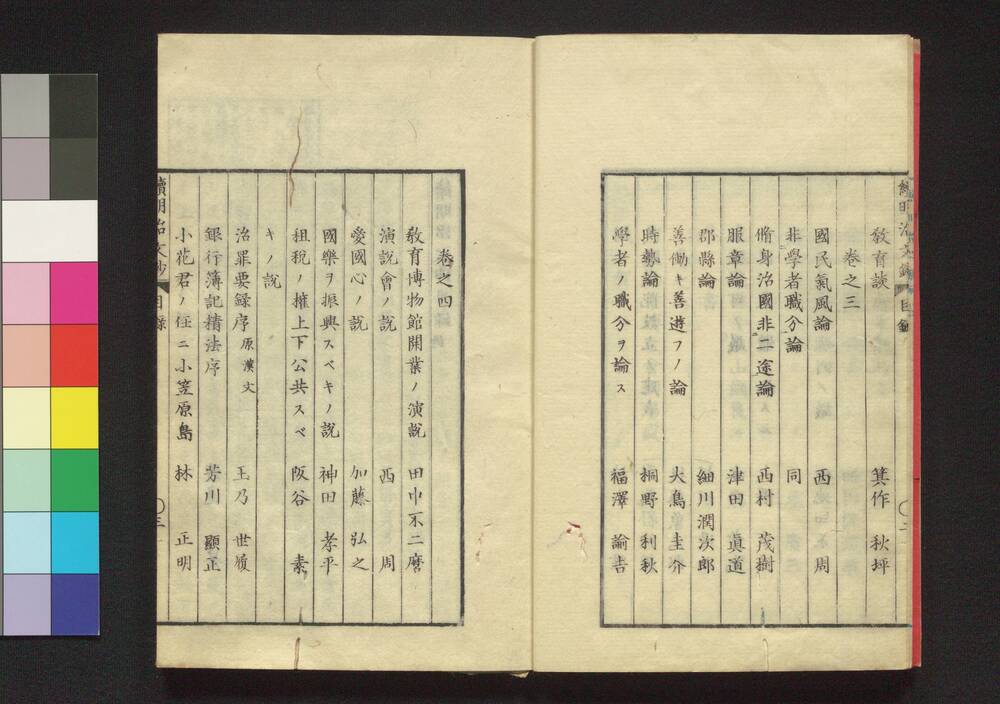 敎育談 箕作 秋坪
卷之三
國民氣風論 西 周
非學者職分論 同
脩身治國非二途論 西村 茂樹
服章論 津田 眞道
郡縣論 細川潤次郎
善働キ善遊フノ論 大鳥 圭介
時勢論 桐野 利秋
學者ノ職分ヲ論ス 福澤 諭吉
目錄
二
卷之四
敎育博物館開業ノ演說 田中不二麿
演說會ノ說 西 周
愛國心ノ說 加藤 弘之
國樂ヲ振興スベキノ說 神田 孝平
租稅ノ權上下公共スベ 阪谷 素
キノ說
治罪要錄序 原漢文 玉乃 世履
銀行簿記精法序 芳川 顯正
小花君ノ任ニ小笠原島 林 正明
續明治文鈔 目錄
三